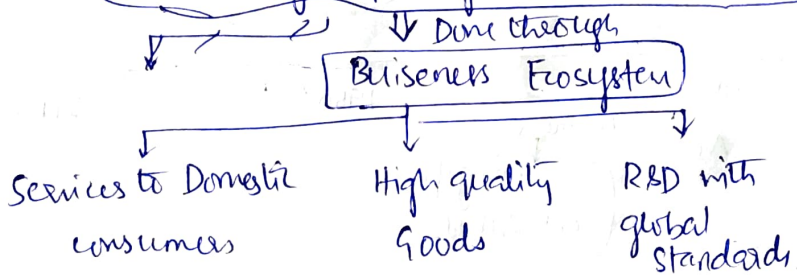 Done through
Buiseness Ecosystem
Services to Domestic
consumers
High quality
Goods
R&D with
global
Standards